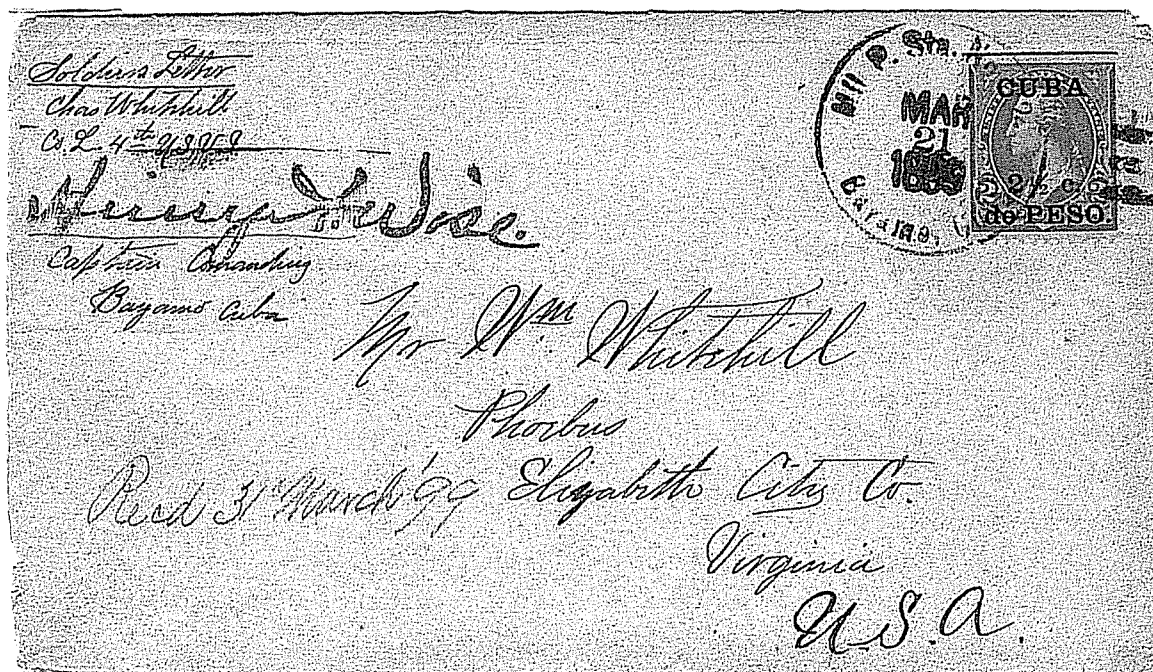 Soldiers Letter
Chas Whitehill
Co. L 4th U.S.V.I
Captain Commanding
Bayamo Cuba
Mil P. Sta.
MAR
21
1899
CUBA
2 ½ c.
de PESO.
Mr Wm Whitehill
Phoebus
Elizabeth City Co.
Recd 31 March '99
Virginia
U.S.A.